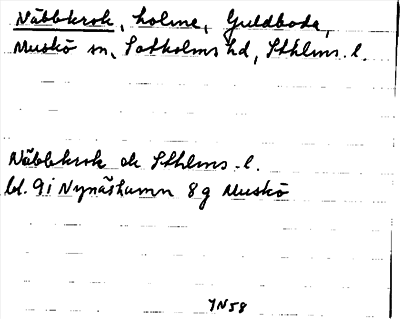 Näbbkrok, holme, Guldboda,
Muskö sn, Sotholms hd, Sthlms. l.
Näbbkrok ek Sthlms. l.
bl. 9i Nynäshamn 8g Muskö
JN58